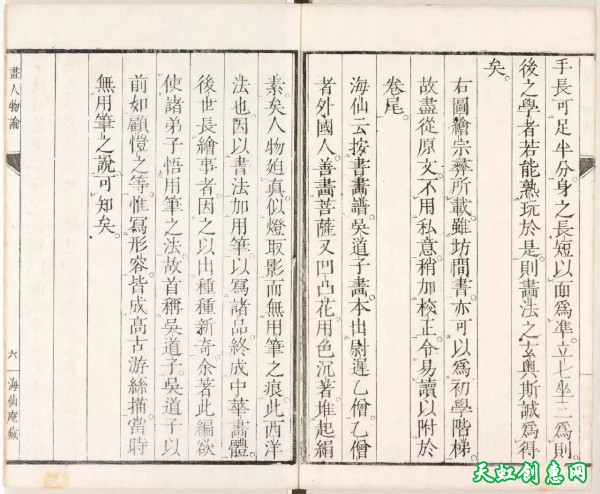 手長可足半分身之長短以面爲準立七坐三爲則
後之學者若能熟玩於是則畫法之玄奥斯誠爲得
矣。
右圖繪宗彛所載雖坊間書亦可以爲初學階梯。
故盡從原文不用私意稍加校正令易讀以附於
卷尾。
海仙云按書畫譜吳道子畫本出尉遲乙僧乙僧
者外國人善畫菩薩又凹凸花用色沉著堆起絹
素矣人物逈真似燈取影而無用筆之痕此西洋
法也因以書法加用筆以寫諸品終成中華畫體
後世長繪事者因之以出種種新奇余著此編欲
使諸弟子悟用筆之法故首稱吳道子吳道子以
前如顧愷之等惟寫形容皆成高古游絲描當時
無用筆之說可知矣。
畫人物論
六
海仙庵藏
天虹创意网